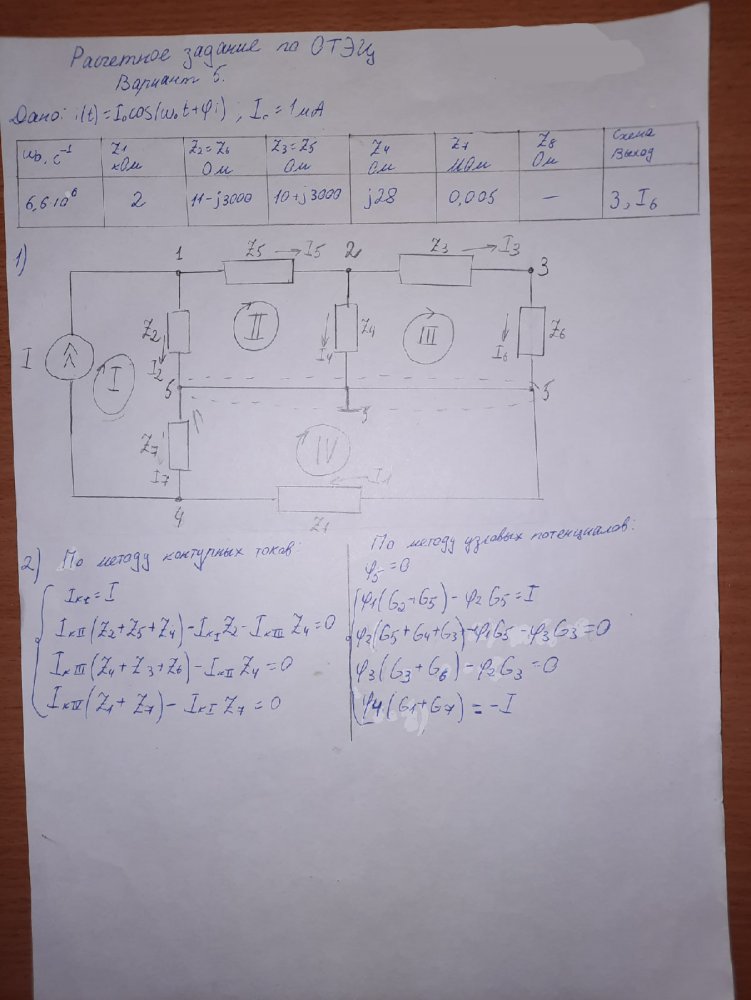 Расчетное задание по ОТЭЦ
Вариант 5.
Дано: i(t)=I₀cos(ω₀t+φi); I₀=1мA
ω₀, c⁻¹ Z1 кОм Z2=Z6 Ом Z3=Z5 Ом Z4 Ом Z7 МОм Z8 Ом Схема Выход
6,6·10⁶ 2 11-j3000 10+j3000 j28 0,005 — 3, I6
1)
1 Z5 I5 2 Z3 I3 3
I I Z2 I2 II Z4 I4 III I6 Z6
5 5 5
Z7 I7 IV I1
4 Z1
2) По методу контурных токов:
IкI=I
IкII(Z2+Z5+Z4)-IкIZ2-IкIIIZ4=0
IкIII(Z4+Z3+Z6)-IкIIZ4=0
IкIV(Z1+Z7)-IкIZ7=0
По методу узловых потенциалов:
φ5=0
φ1(G2+G5)-φ2G5=I
φ2(G5+G4+G3)-φ1G5-φ3G3=0
φ3(G3+G6)-φ2G3=0
φ4(G1+G7)=-I